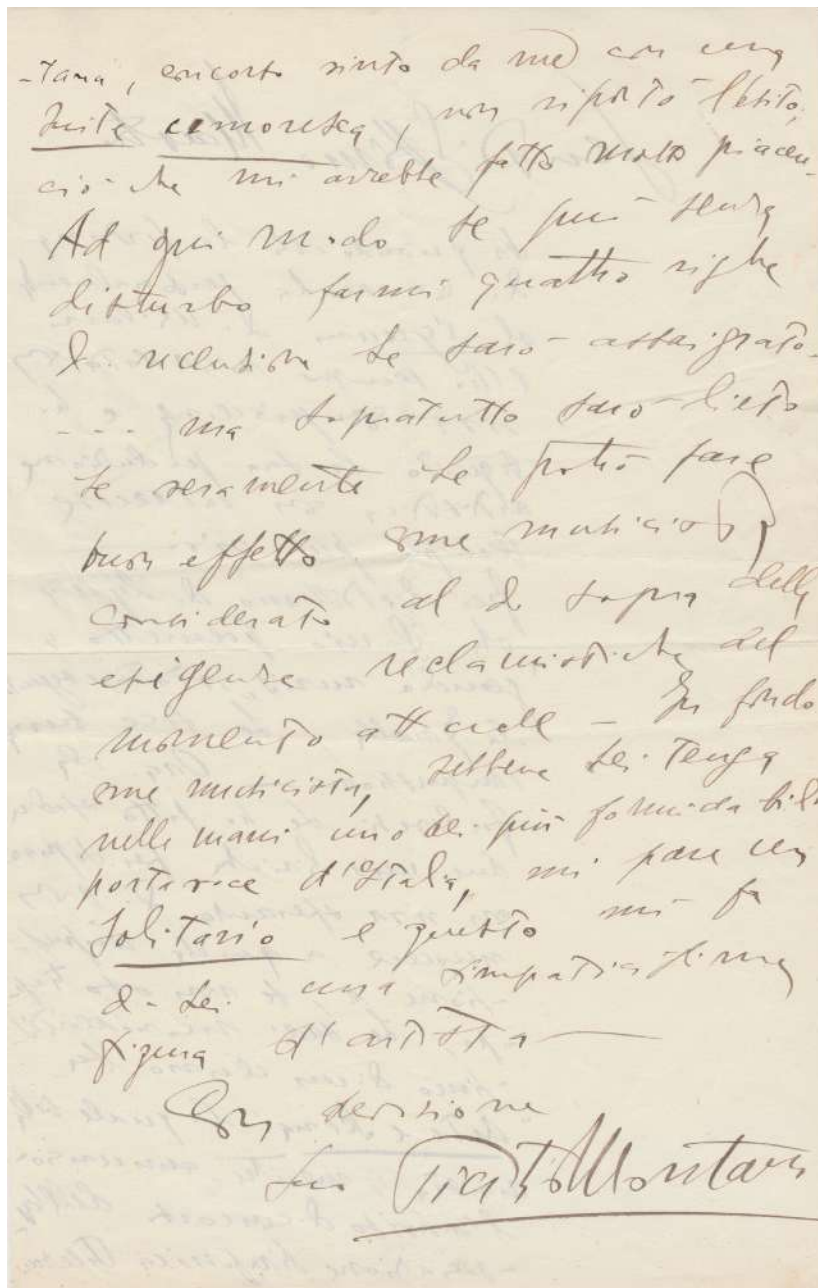 -tana, concorso vinto da me con una
Suite umoresca, non riportò l'esito,
ciò che mi avrebbe fatto molto piacere-
Ad ogni modo se può senza
disturbo farmi quattro righe
di recensione Le sarò assai grato-
... ma sopratutto sarò lieto
se veramente Le potrò fare
buon effetto come musicista
considerato al di sopra delle
esigenze reclamistiche del
momento attuale - In fondo
come musicista, sebbene Lei tenga
nelle mani uno dei più formidabili
portavoce d'Italia, mi pare un
solitario e questo mi fa
di Lei una simpaticissima
figura d'artista -
Con
Suo Montani